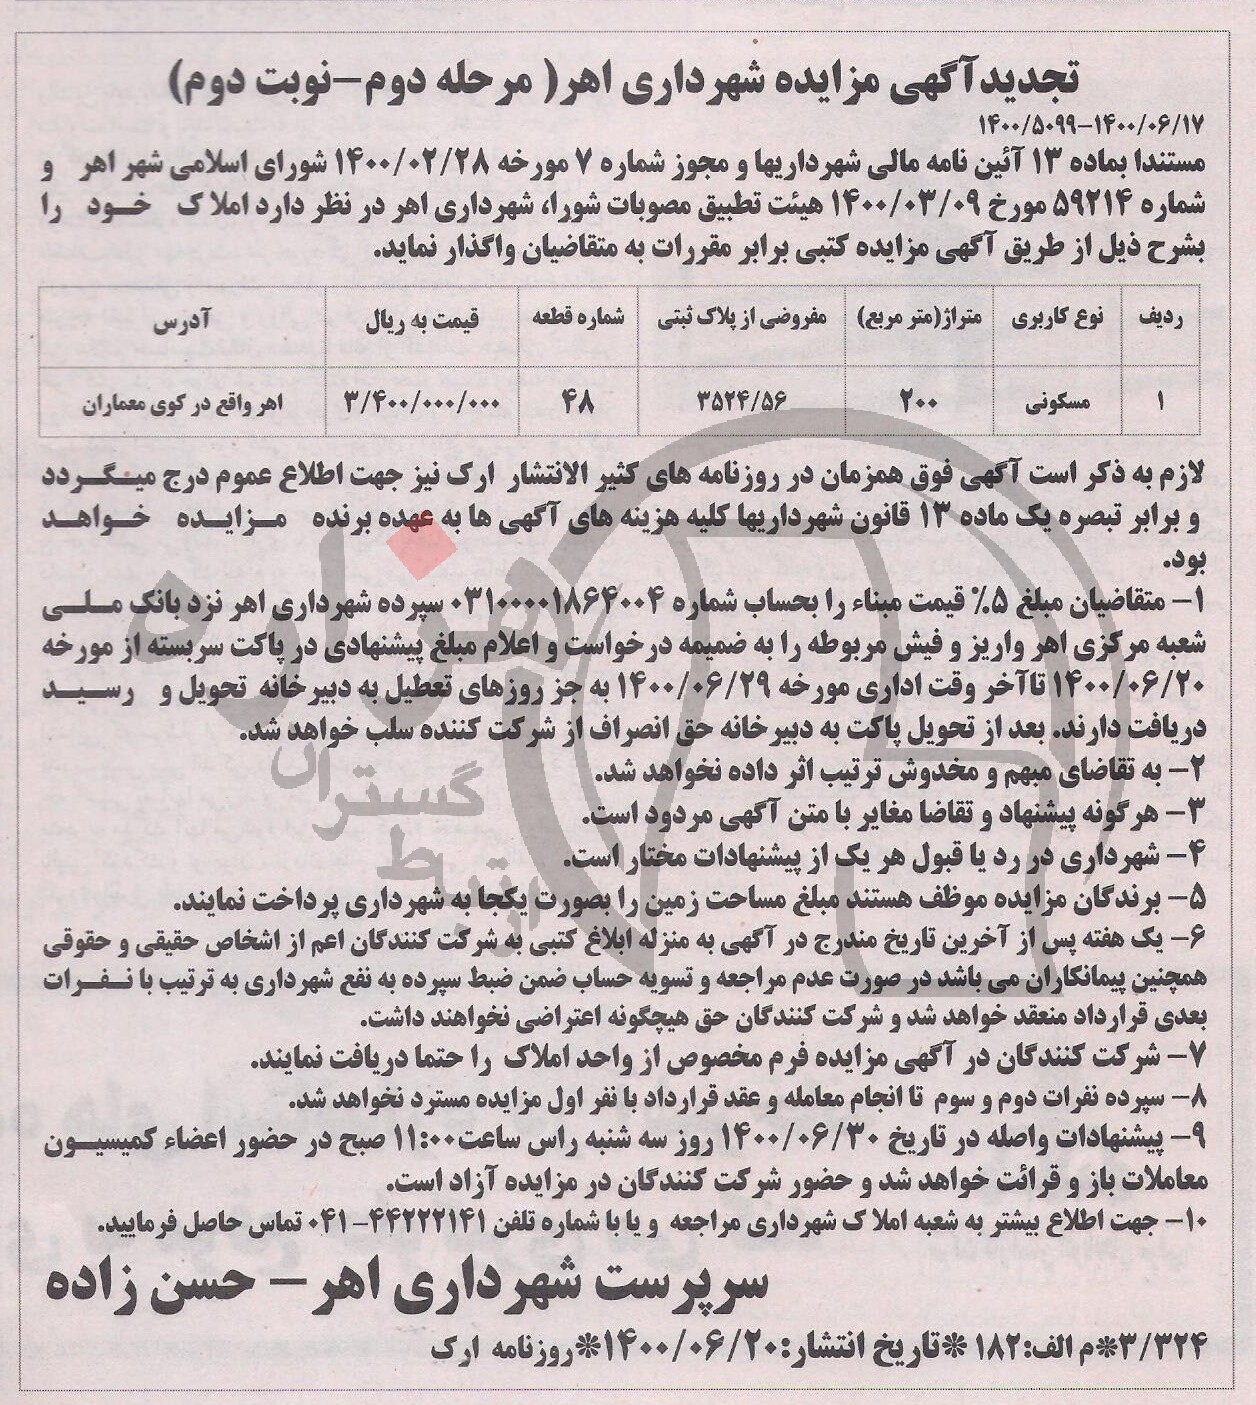 تجدیدآگهی مزایده شهرداری اهر( مرحله دوم-نوبت دوم)
۱۴۰۰/۵۰۹۹-۱۴۰۰/۰۶/۱۷
مستندا بماده ۱۳ آئین نامه مالی شهرداریها و مجوز شماره ۷ مورخه ۱۴۰۰/۰۲/۲۸ شورای اسلامی شهر اهر و
شماره ۵۹۲۱۴ مورخ ۱۴۰۰/۰۳/۰۹ هیئت تطبیق مصوبات شورا، شهرداری اهر در نظر دارد املاک خود را
بشرح ذیل از طریق آگهی مزایده کتبی برابر مقررات به متقاضیان واگذار نماید.
ردیف نوع کاربری متراژ(متر مربع) مفروضی از پلاک ثبتی شماره قطعه قیمت به ریال آدرس
۱ مسکونی ۲۰۰ ۳۵۲۴/۵۶ ۴۸ ۳/۴۰۰/۰۰۰/۰۰۰ اهر واقع در کوی معماران
لازم به ذکر است آگهی فوق همزمان در روزنامه های کثیر الانتشار ارک نیز جهت اطلاع عموم درج میگردد
و برابر تبصره یک ماده ۱۳ قانون شهرداریها کلیه هزینه های آگهی ها به عهده برنده مزایده خواهد
بود.
۱- متقاضیان مبلغ ۵% قیمت مبناء را بحساب شماره ۰۳۱۰۰۰۰۱۸۶۴۰۰۴ سپرده شهرداری اهر نزد بانک ملی
شعبه مرکزی اهر واریز و فیش مربوطه را به ضمیمه درخواست و اعلام مبلغ پیشنهادی در پاکت سربسته از مورخه
۱۴۰۰/۰۶/۲۰ تاآخر وقت اداری مورخه ۱۴۰۰/۰۶/۲۹ به جز روزهای تعطیل به دبیرخانه تحویل و رسید
دریافت دارند. بعد از تحویل پاکت به دبیرخانه حق انصراف از شرکت کننده سلب خواهد شد.
۲- به تقاضای مبهم و مخدوش ترتیب اثر داده نخواهد شد.
۳- هرگونه پیشنهاد و تقاضا مغایر با متن آگهی مردود است.
۴- شهرداری در رد یا قبول هر یک از پیشنهادات مختار است.
۵- برندگان مزایده موظف هستند مبلغ مساحت زمین را بصورت یکجا به شهرداری پرداخت نمایند.
۶- یک هفته پس از آخرین تاریخ مندرج در آگهی به منزله ابلاغ کتبی به شرکت کنندگان اعم از اشخاص حقیقی و حقوقی
همچنین پیمانکاران می باشد در صورت عدم مراجعه و تسویه حساب ضمن ضبط سپرده به نفع شهرداری به ترتیب با نفرات
بعدی قرارداد منعقد خواهد شد و شرکت کنندگان حق هیچگونه اعتراضی نخواهند داشت.
۷- شرکت کنندگان در آگهی مزایده فرم مخصوص از واحد املاک را حتما دریافت نمایند.
۸- سپرده نفرات دوم و سوم تا انجام معامله و عقد قرارداد با نفر اول مزایده مسترد نخواهد شد.
۹- پیشنهادات واصله در تاریخ ۱۴۰۰/۰۶/۳۰ روز سه شنبه راس ساعت۱۱:۰۰ صبح در حضور اعضاء کمیسیون
معاملات باز و قرائت خواهد شد و حضور شرکت کنندگان در مزایده آزاد است.
۱۰- جهت اطلاع بیشتر به شعبه املاک شهرداری مراجعه و یا با شماره تلفن ۴۴۲۲۲۱۴۱-۰۴۱ تماس حاصل فرمایید.
سرپرست شهرداری اهر - حسن زاده
۳/۳۲۴*م الف:۱۸۲ *تاریخ انتشار:۱۴۰۰/۰۶/۲۰*روزنامه ارک
هزاره
ارتباط گستران